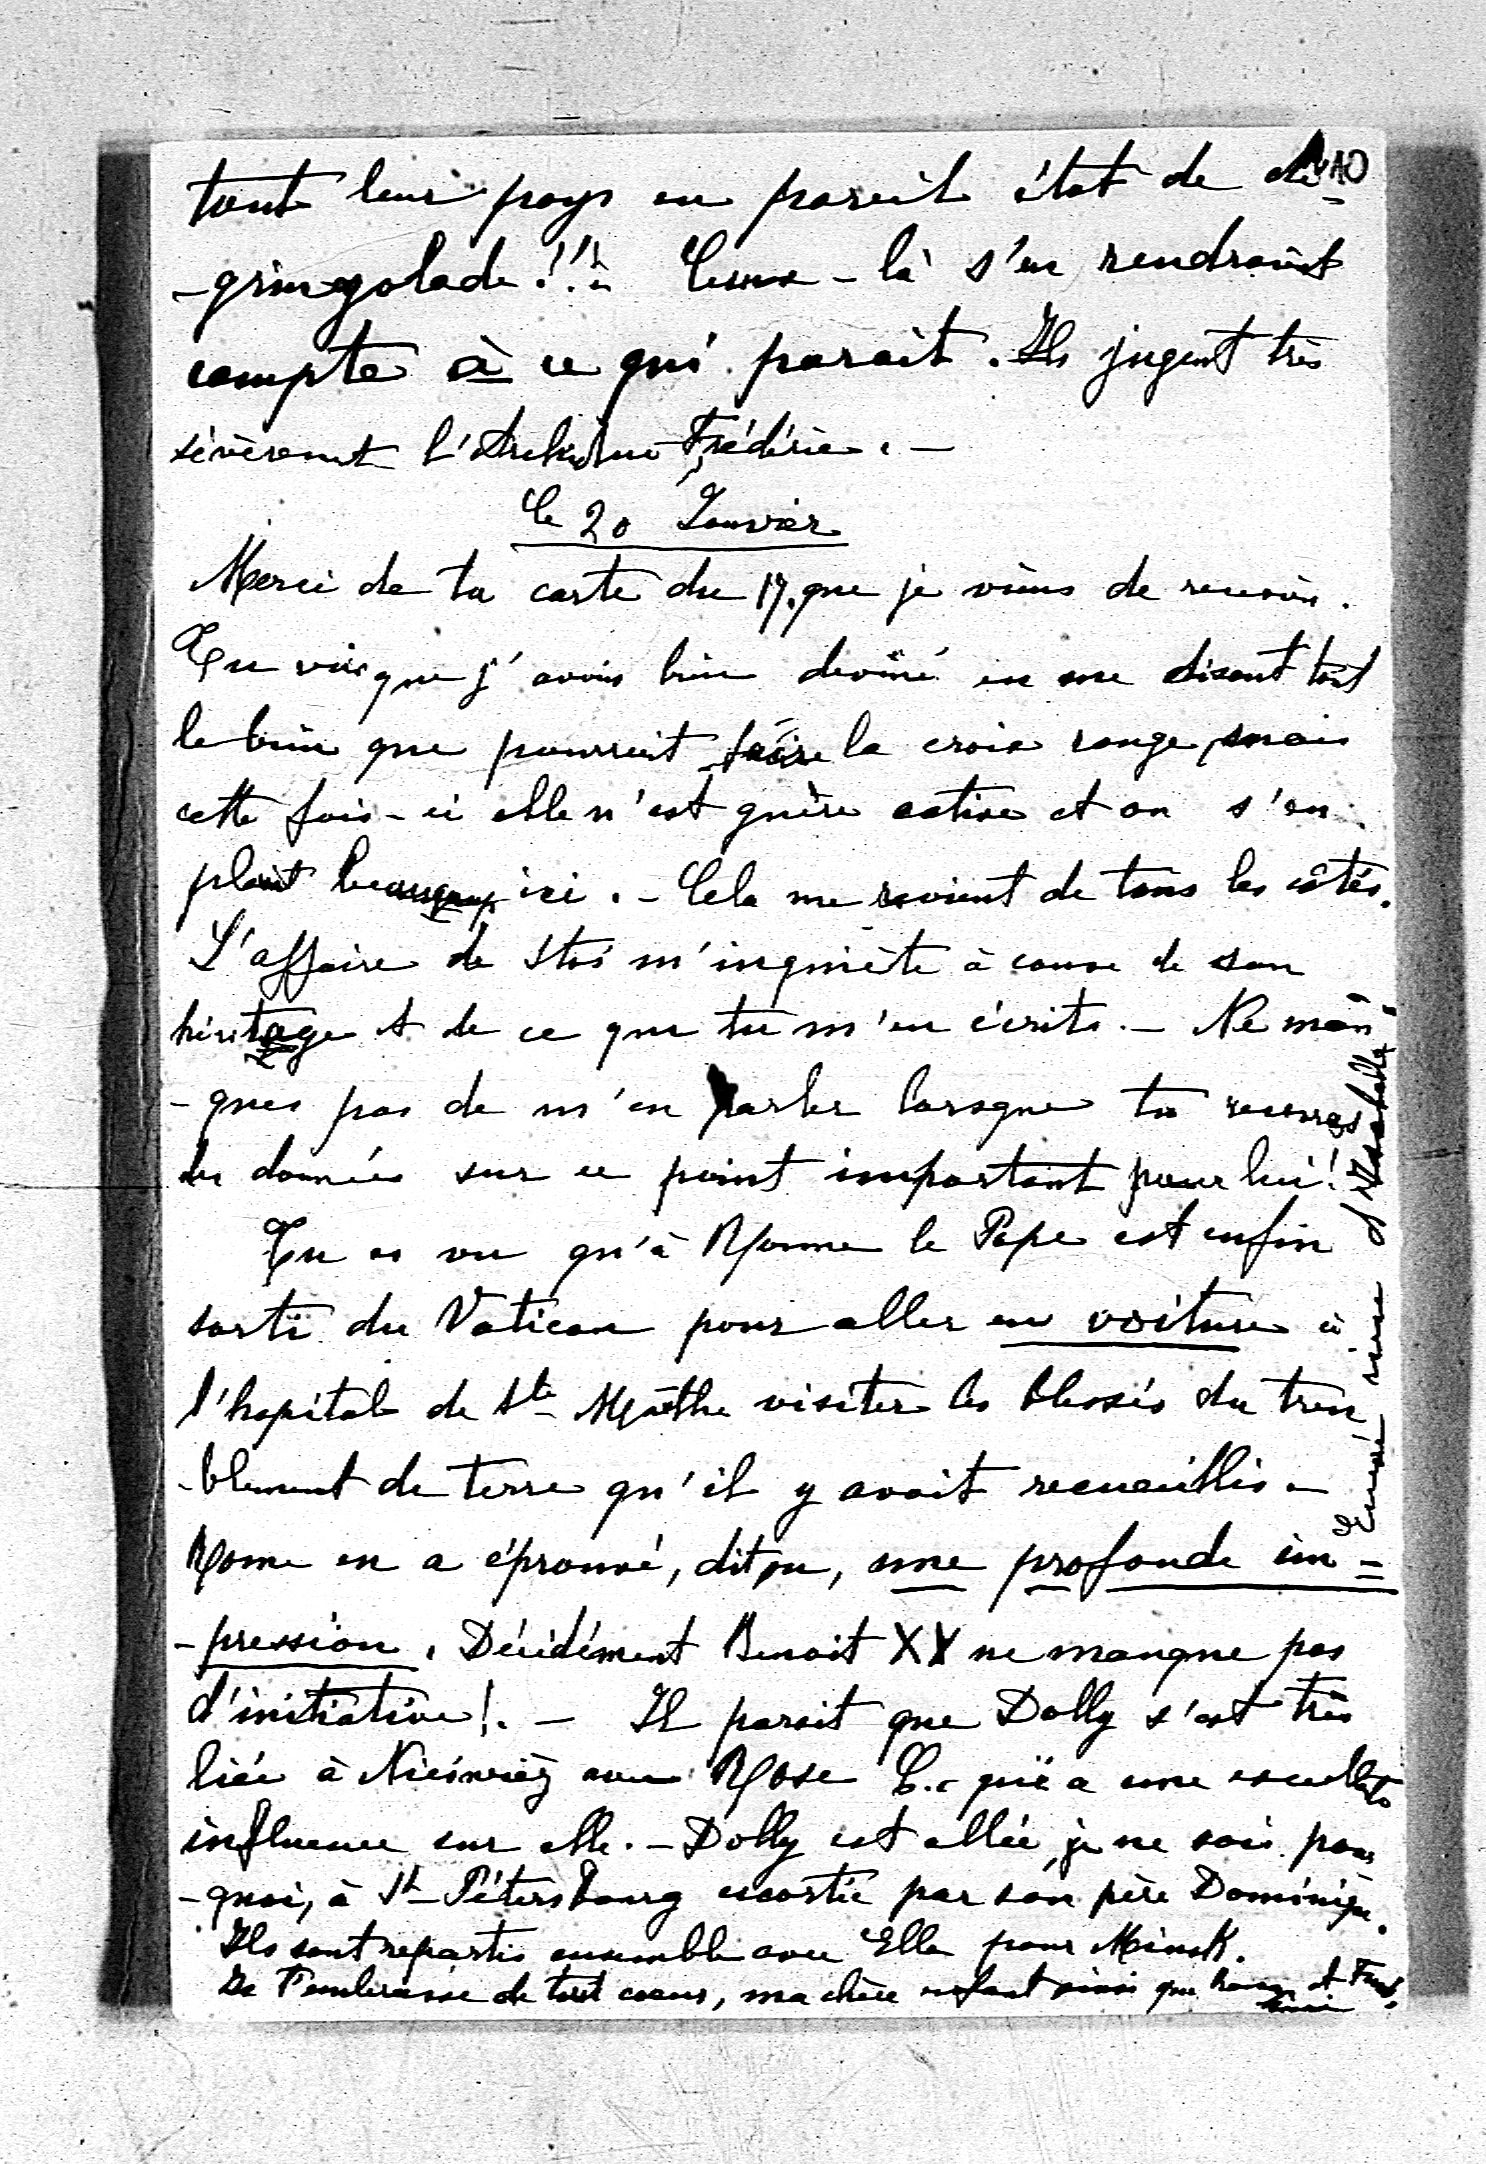 10
tout leur pays en pareil état de dé-
-gringolade!!! Ceux-là s'en rendraient
compte à ce qui parait. Ils jugent très
sévèrement l'Archiduc Frédéric. —
Le 20 Janvier
Merci de ta carte du 17. que je viens de recevoir.
Tu vois que j'avais bien deviné en me disant tout
le bien que pourrait faire la croix rouge, mais
cette fois-ci elle n'est guère active et on s'en
plaint beaucoup ici. - Cela me revient de tous les côtés.
L'affaire de Stas m'inquiète à cause de son
héritage et de ce que tu m'en écrits. - Ne man-
-ques pas de m'en parler lorsque tu recevras
des données sur ce point important pour lui!
Tu as vu qu'à Rome le Pape est enfin
sorti du Vatican pour aller en voiture à
l'hopital de Ste Marthe visiter les blessés du trem
-blement de terre qu'il y avait recueillis -
Rome en a éprouvé, dit on, une profonde im=
-pression. Décidément Benoit XV ne manque pas
d'initiative!. - Il parait que Dolly s'est très
liée à Nieśwież avec Rose C. qui a une excellente
influence sur elle. - Dolly est allée, je ne sais pour
-quoi, à St-Pétersbourg escortée par son père Dominique.
Ils sont repartis ensemble avec Ella pour Minsk.
Je t'embrasse de tout coeur, ma chère enfant ainsi que et